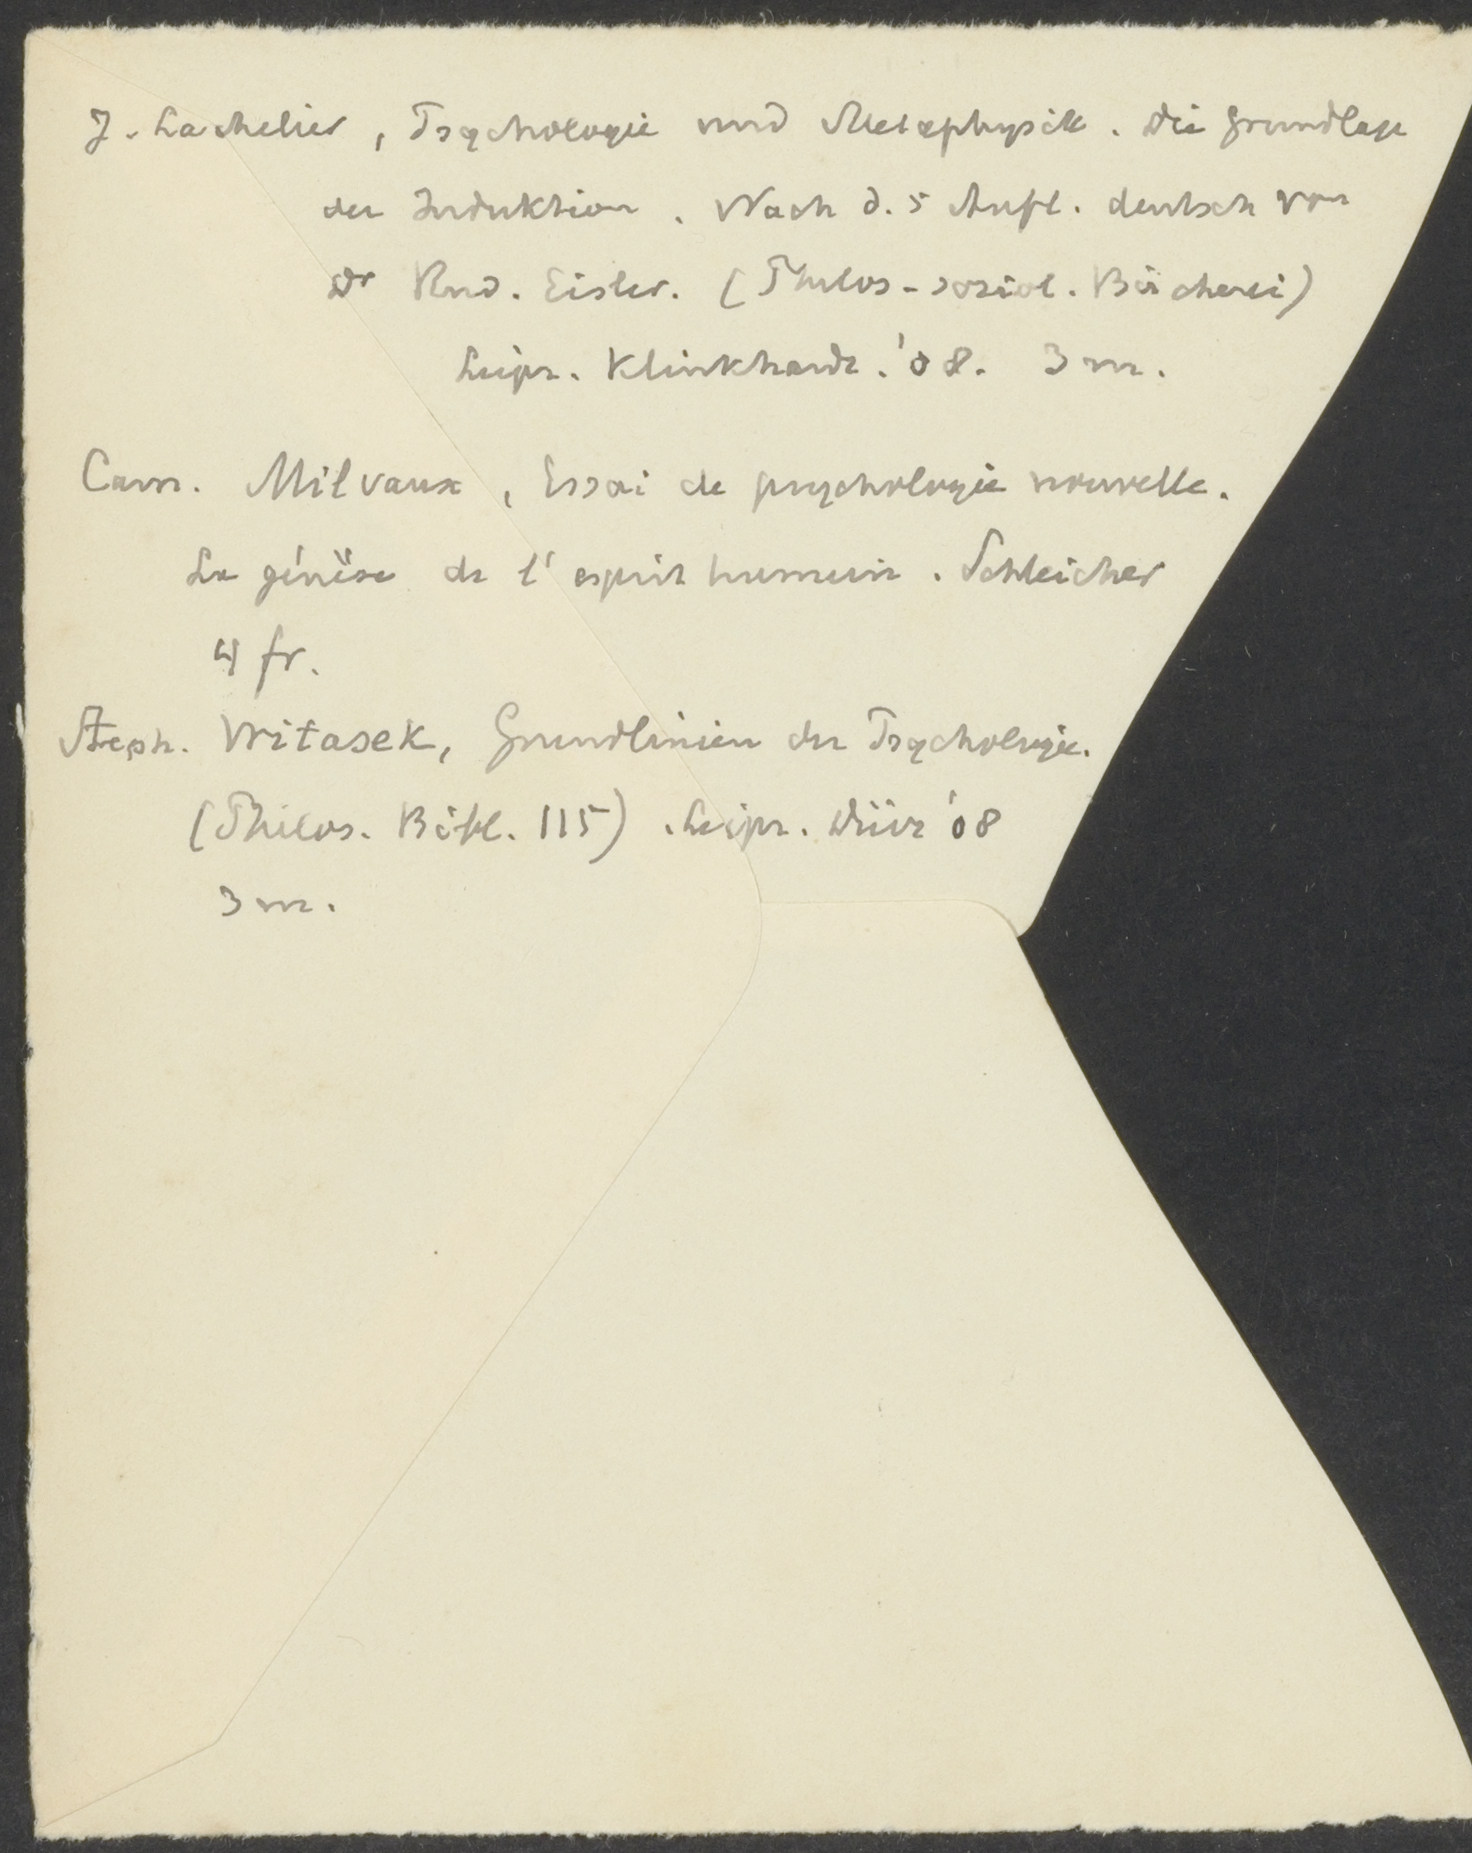 J. Lachelier, Psychologie und Metaphysik. Die Grundlage
der Induktion. Nach d. 5 Aufl. deutsch von
Dr Rud. Eisler. (Philos-soziol. Bücherei)
Leipz. Klinkhardt. '08. 3 m.
Cam. Milvaux, Essai de psychologie nouvelle.
La génèse de l'esprit humain. Schleicher
4 fr.
Steph. Witasek, Grundlinien der Psychologie.
(Philos. Bibl. 115). Leipz. Dürr '08
3 m.